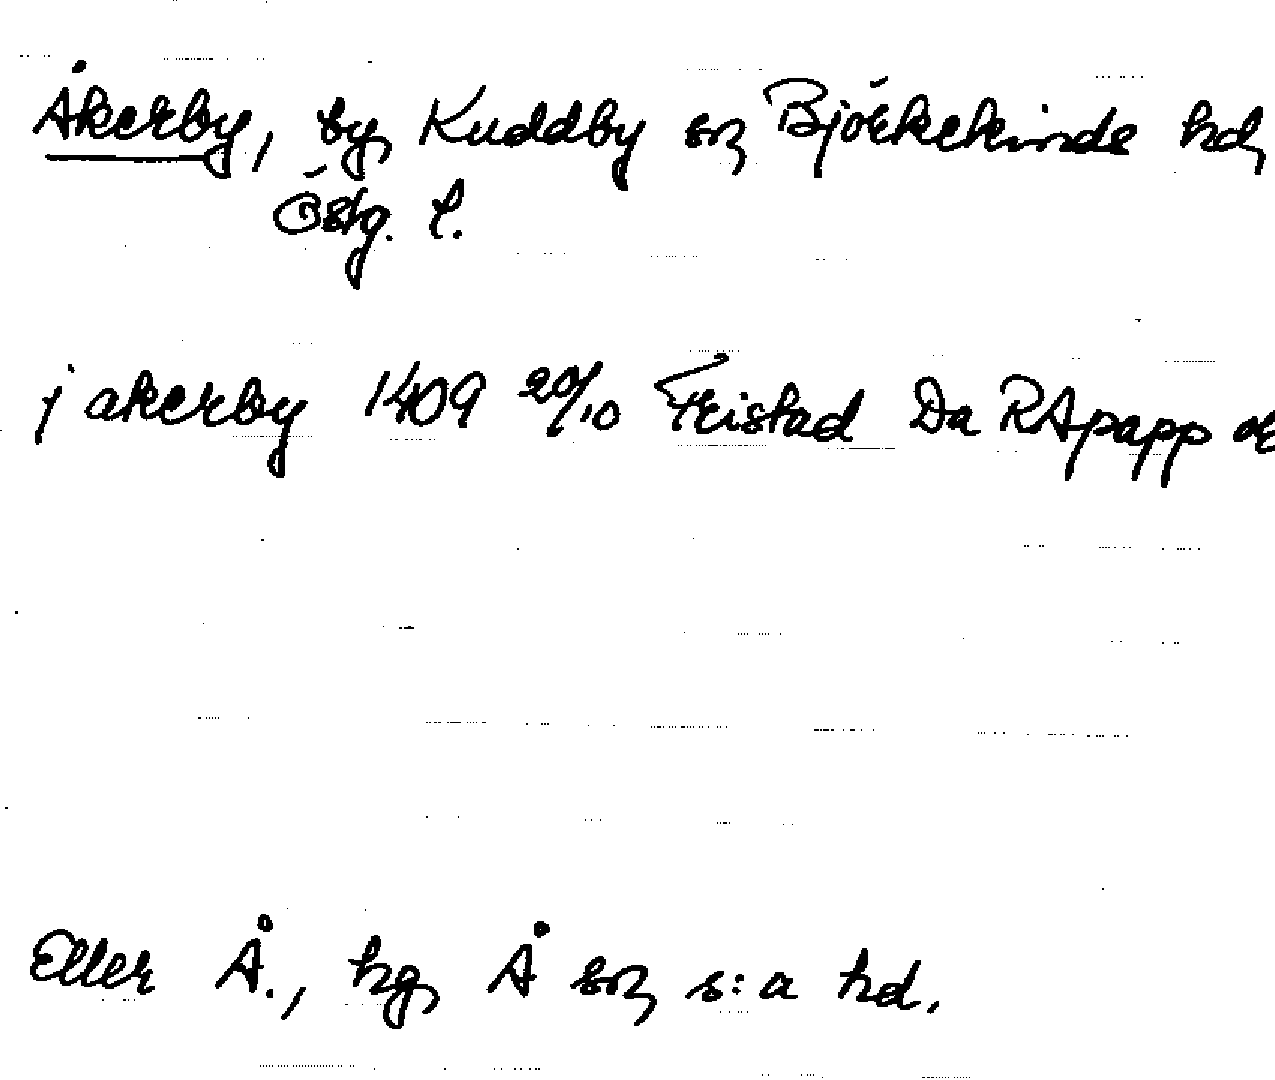 Åkerby, by, Kuddby sn, Björkekinds hd,
Östg. l.
j akerby 1409 20/10 Fristad Da RApapp or
Eller Å., hg, Å sn, s:a hd.